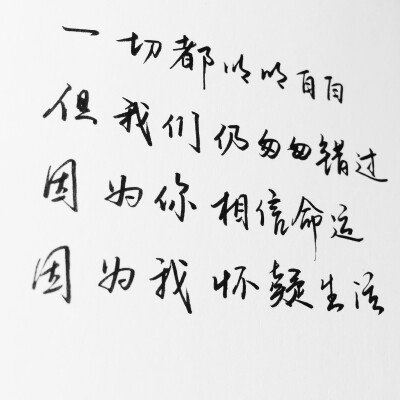 一切都明明白白
但我们仍匆匆错过
因为你相信命运
因为我怀疑生活